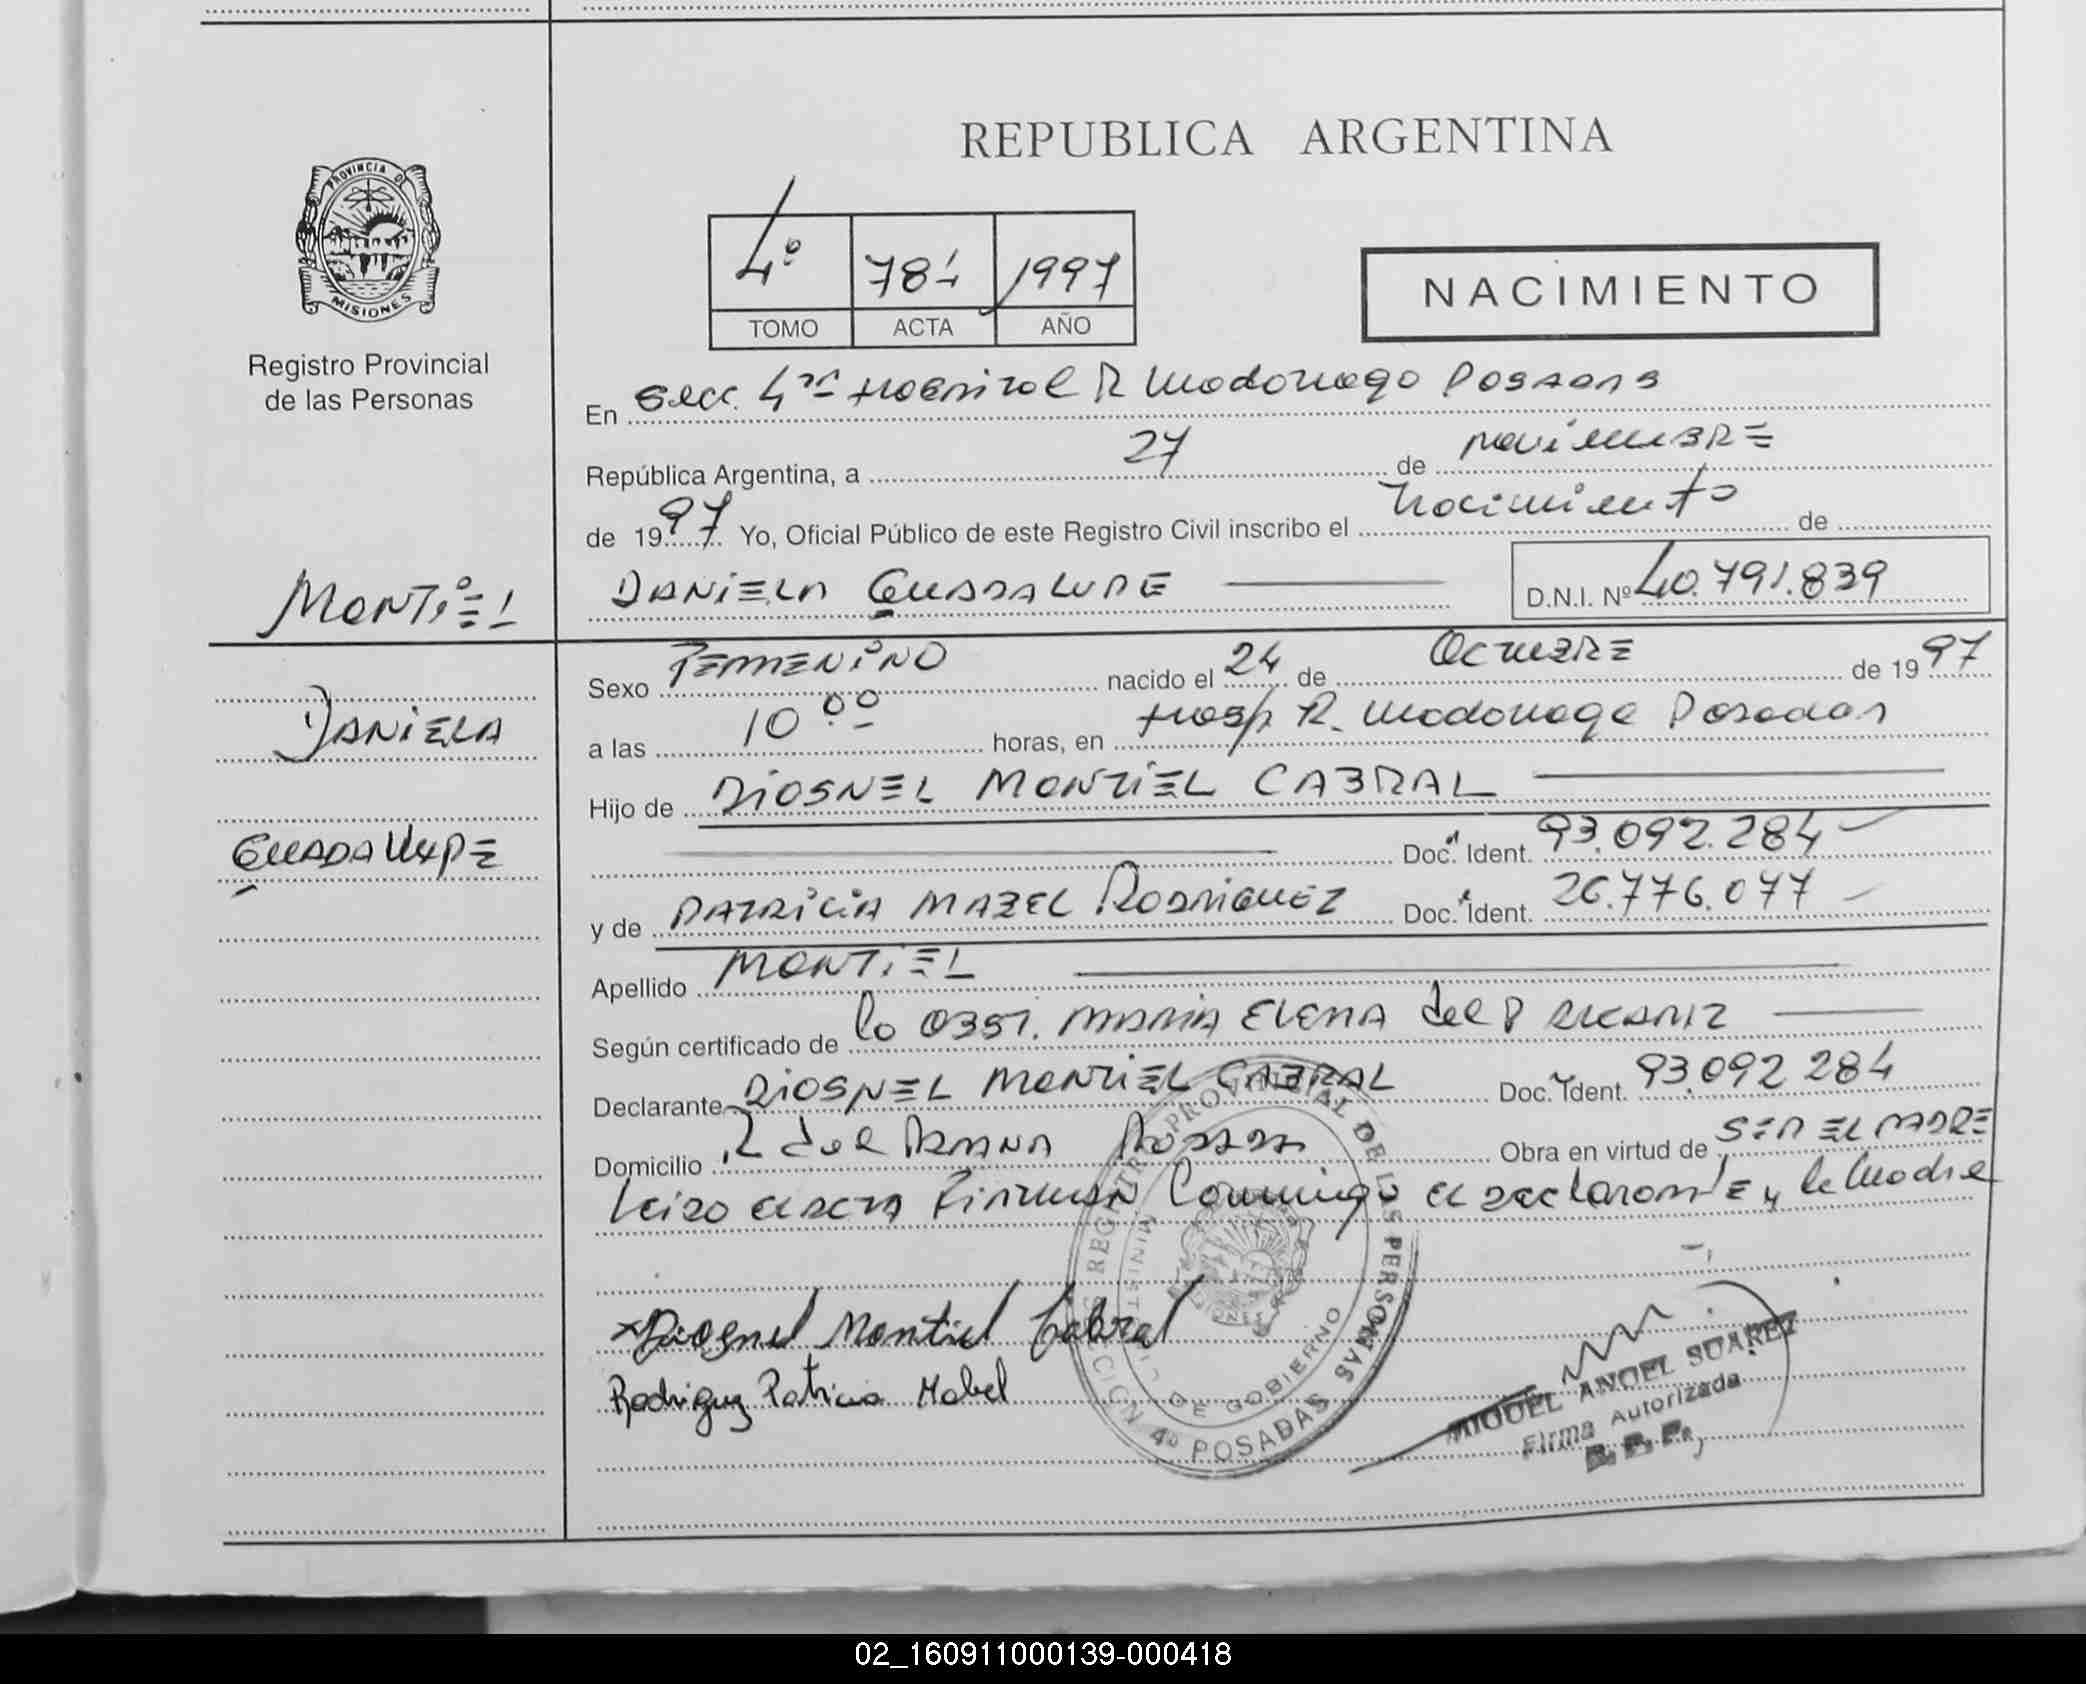 REPUBLICA ARGENTINA
PROVINCIA DE
MISIONES
Registro Provincial
de las Personas
4º 784 1997
TOMO ACTA AÑO
NACIMIENTO
En Secc. 4ta Hospital R Madariaga Posadas
República Argentina, a 27 de noviembre
de 1997 Yo, Oficial Público de este Registro Civil inscribo el nacimiento de
MONTIEL
DANIELA GUADALUPE D.N.I. Nº 40.791.839
Sexo FEMENINO nacido el 24 de OCTUBRE de 1997
DANIELA
a las 10 00 horas, en Hosp R. Madariaga Posadas
Hijo de DIOSNEL MONTIEL CABRAL
GUADALUPE
Doc. Ident. 93.092.284
y de PATRICIA MABEL RODRIGUEZ Doc. Ident. 26.776.077
Apellido MONTIEL
Según certificado de la OBST. MARIA ELENA del P
Declarante DIOSNEL MONTIEL CABRAL Doc. Ident. 93.092 284
Domicilio Obra en virtud de SER EL PADRE
Leida el acta Firman Conmigo el declarante y la Madre
Diosnel Montiel Cabral
Rodriguez Patricia Mabel
REGISTRO PROVINCIAL DE LAS PERSONAS
MINISTERIO DE GOBIERNO
SECCION 4º POSADAS
MIGUEL ANGEL SUAREZ
Firma Autorizada
R. P. P.
02_160911000139-000418